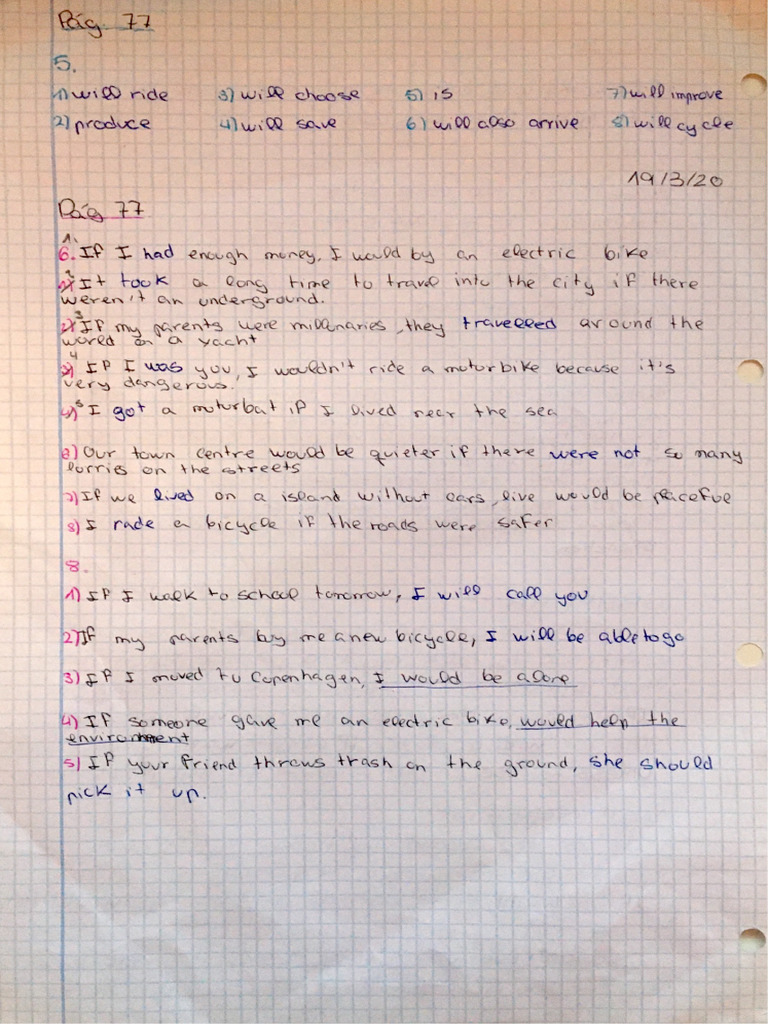 Pág. 77
5.
1) will ride 3) will choose 5) is 7) will improve
2) produce 4) will save 6) will also arrive 8) will cycle
19/3/20
Pág 77
6. 1. If I had enough money, I would by an electric bike
2 It took a long time to travel into the city if there
weren't an underground.
3 If my parents were millinaries, they travelled around the
world on a yacht
4 If I was you, I wouldn't ride a motorbike because it's
very dangerous.
5 I got a moturbat if I lived near the sea
6) Our town centre would be quieter if there were not so many
lorries on the streets
7) If we lived on a island without cars, live would be peaceful
8) I rade a bicycle if the roads were safer
8.
1) If I walk to school tomorrow, I will call you
2) If my parents buy me a new bicycle, I will be able to go
3) If I moved to Copenhagen, I would be alone
4) If someone gave me an electric bike, would help the
environment
5) If your friend throws trash on the ground, she should
pick it up.